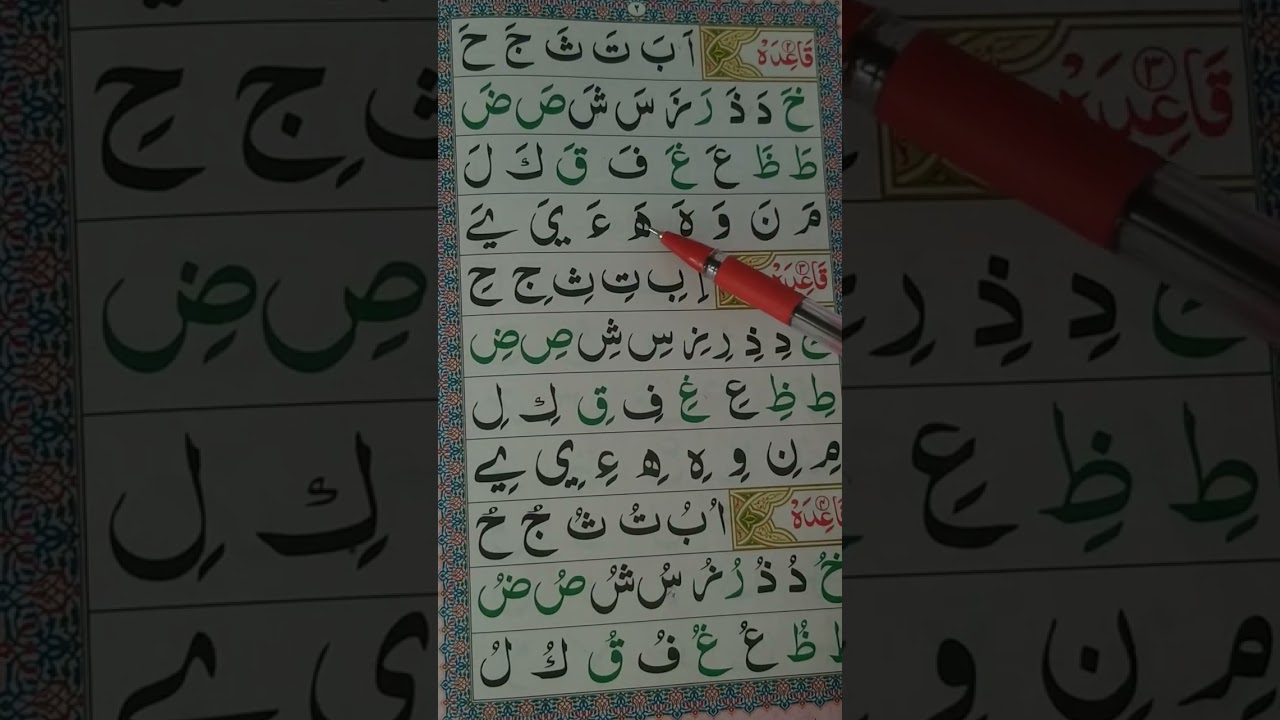 ٢
قَاعِدَہ ٢ اَ بَ تَ ثَ جَ حَ
خَ دَ ذَ رَ زَ سَ شَ صَ ضَ
طَ ظَ عَ غَ فَ قَ كَ لَ
مَ نَ وَ هَ هَ ءَ يَ ےَ
قَاعِدَہ ٣ اِ بِ تِ ثِ جِ حِ
خِ دِ ذِ رِ زِ سِ شِ صِ ضِ
طِ ظِ عِ غِ فِ قِ كِ لِ
مِ نِ وِ هِ هِ ءِ يِ ےِ
قَاعِدَہ ٤ اُ بُ تُ ثُ جُ حُ
خُ دُ ذُ رُ زُ سُ شُ صُ ضُ
ظُ عُ غُ فُ قُ كُ لُ